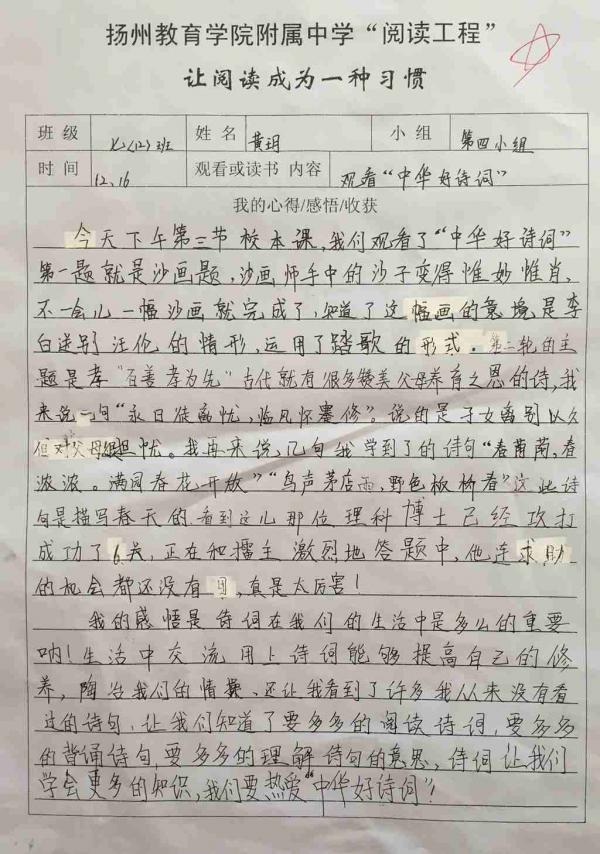 扬州教育学院附属中学“阅读工程”
让阅读成为一种习惯
班级 (12)班 姓名 黄玥 小组 第四小组
时间 12.16 观看或读书 内容 观看“中华好诗词”
我的心得/感悟/收获
今天下午第三节校本课,我们观看了“中华好诗词”
第一题就是沙画题,沙画师手中的沙子变得惟妙惟肖,
不一会儿一幅沙画就完成了,知道了这幅画的意境是李
白送别汪伦的情形,运用了踏歌的形式。第二轮的主
题是孝“百善孝为先”古代就有很多赞美父母养育之恩的诗,我
来说一句“永日徒离忧,临风怀蹇修”。说的是子女离别以久
但对父母担忧。我再来说,几句我学到了的诗句“春茵茵,春
浓浓。满园春花开放”“鸟声茅店雨,野色板桥春”这些诗
句是描写春天的。看到这儿那位理科博士已经攻打
成功了6关,正在和擂主激烈地答题中,他连求助
的机会都还没有用,真是太厉害!
我的感悟是诗词在我们的生活中是多么的重要
呐!生活中交流用上诗词能够提高自己的修
养,陶冶我们的情操、还让我看到了许多我从来没有看
过的诗句,让我们知道了要多多的阅读诗词,要多多
的背诵诗句,要多多的理解诗句的意思,诗词让我们
学会更多的知识,我们要热爱“中华好诗词”!